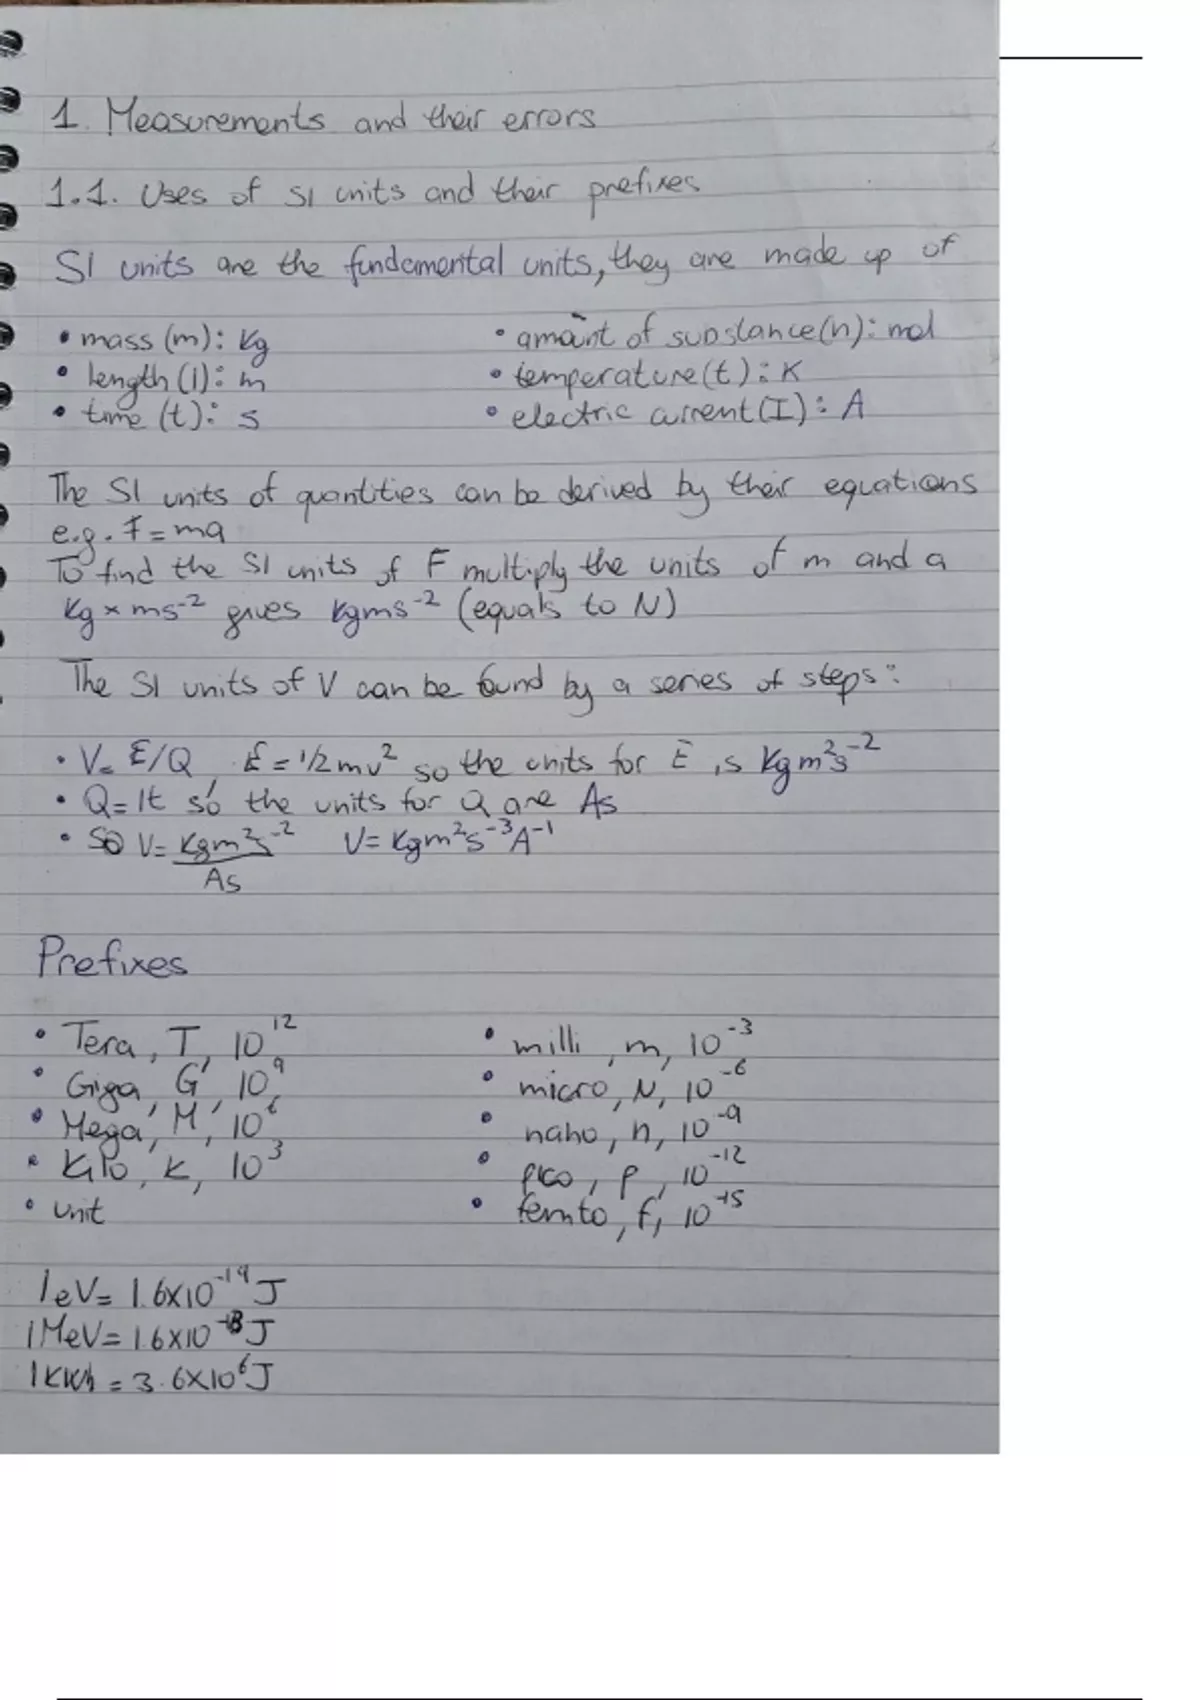 1. Measurements and their errors
1.1. Uses of SI units and their prefixes
SI units are the fundamental units, they are made up of
• mass (m): Kg
• length (l): m
• time (t): s
• amount of substance (n): mol
• temperature (t): K
• electric current (I): A
The SI units of quantities can be derived by their equations
e.g. F = ma
To find the SI units of F multiply the units of m and a
Kg × ms⁻² gives Kgms⁻² (equals to N)
The SI units of V can be found by a series of steps:
• V= E/Q, E = 1/2mv² so the units for E is Kgm²s⁻²
• Q=It so the units for Q are As
• So V= Kgm²s⁻²/As V= Kgm²s⁻³A⁻¹
Prefixes
• Tera, T, 10¹²
• Giga, G, 10⁹
• Mega, M, 10⁶
• Kilo, K, 10³
• unit
• milli, m, 10⁻³
• micro, N, 10⁻⁶
• nano, n, 10⁻⁹
• pico, p, 10⁻¹²
• femto, f, 10⁻¹⁵
1eV= 1.6X10⁻¹⁹J
1MeV= 1.6X10⁻¹³J
1KWh = 3.6X10⁶J